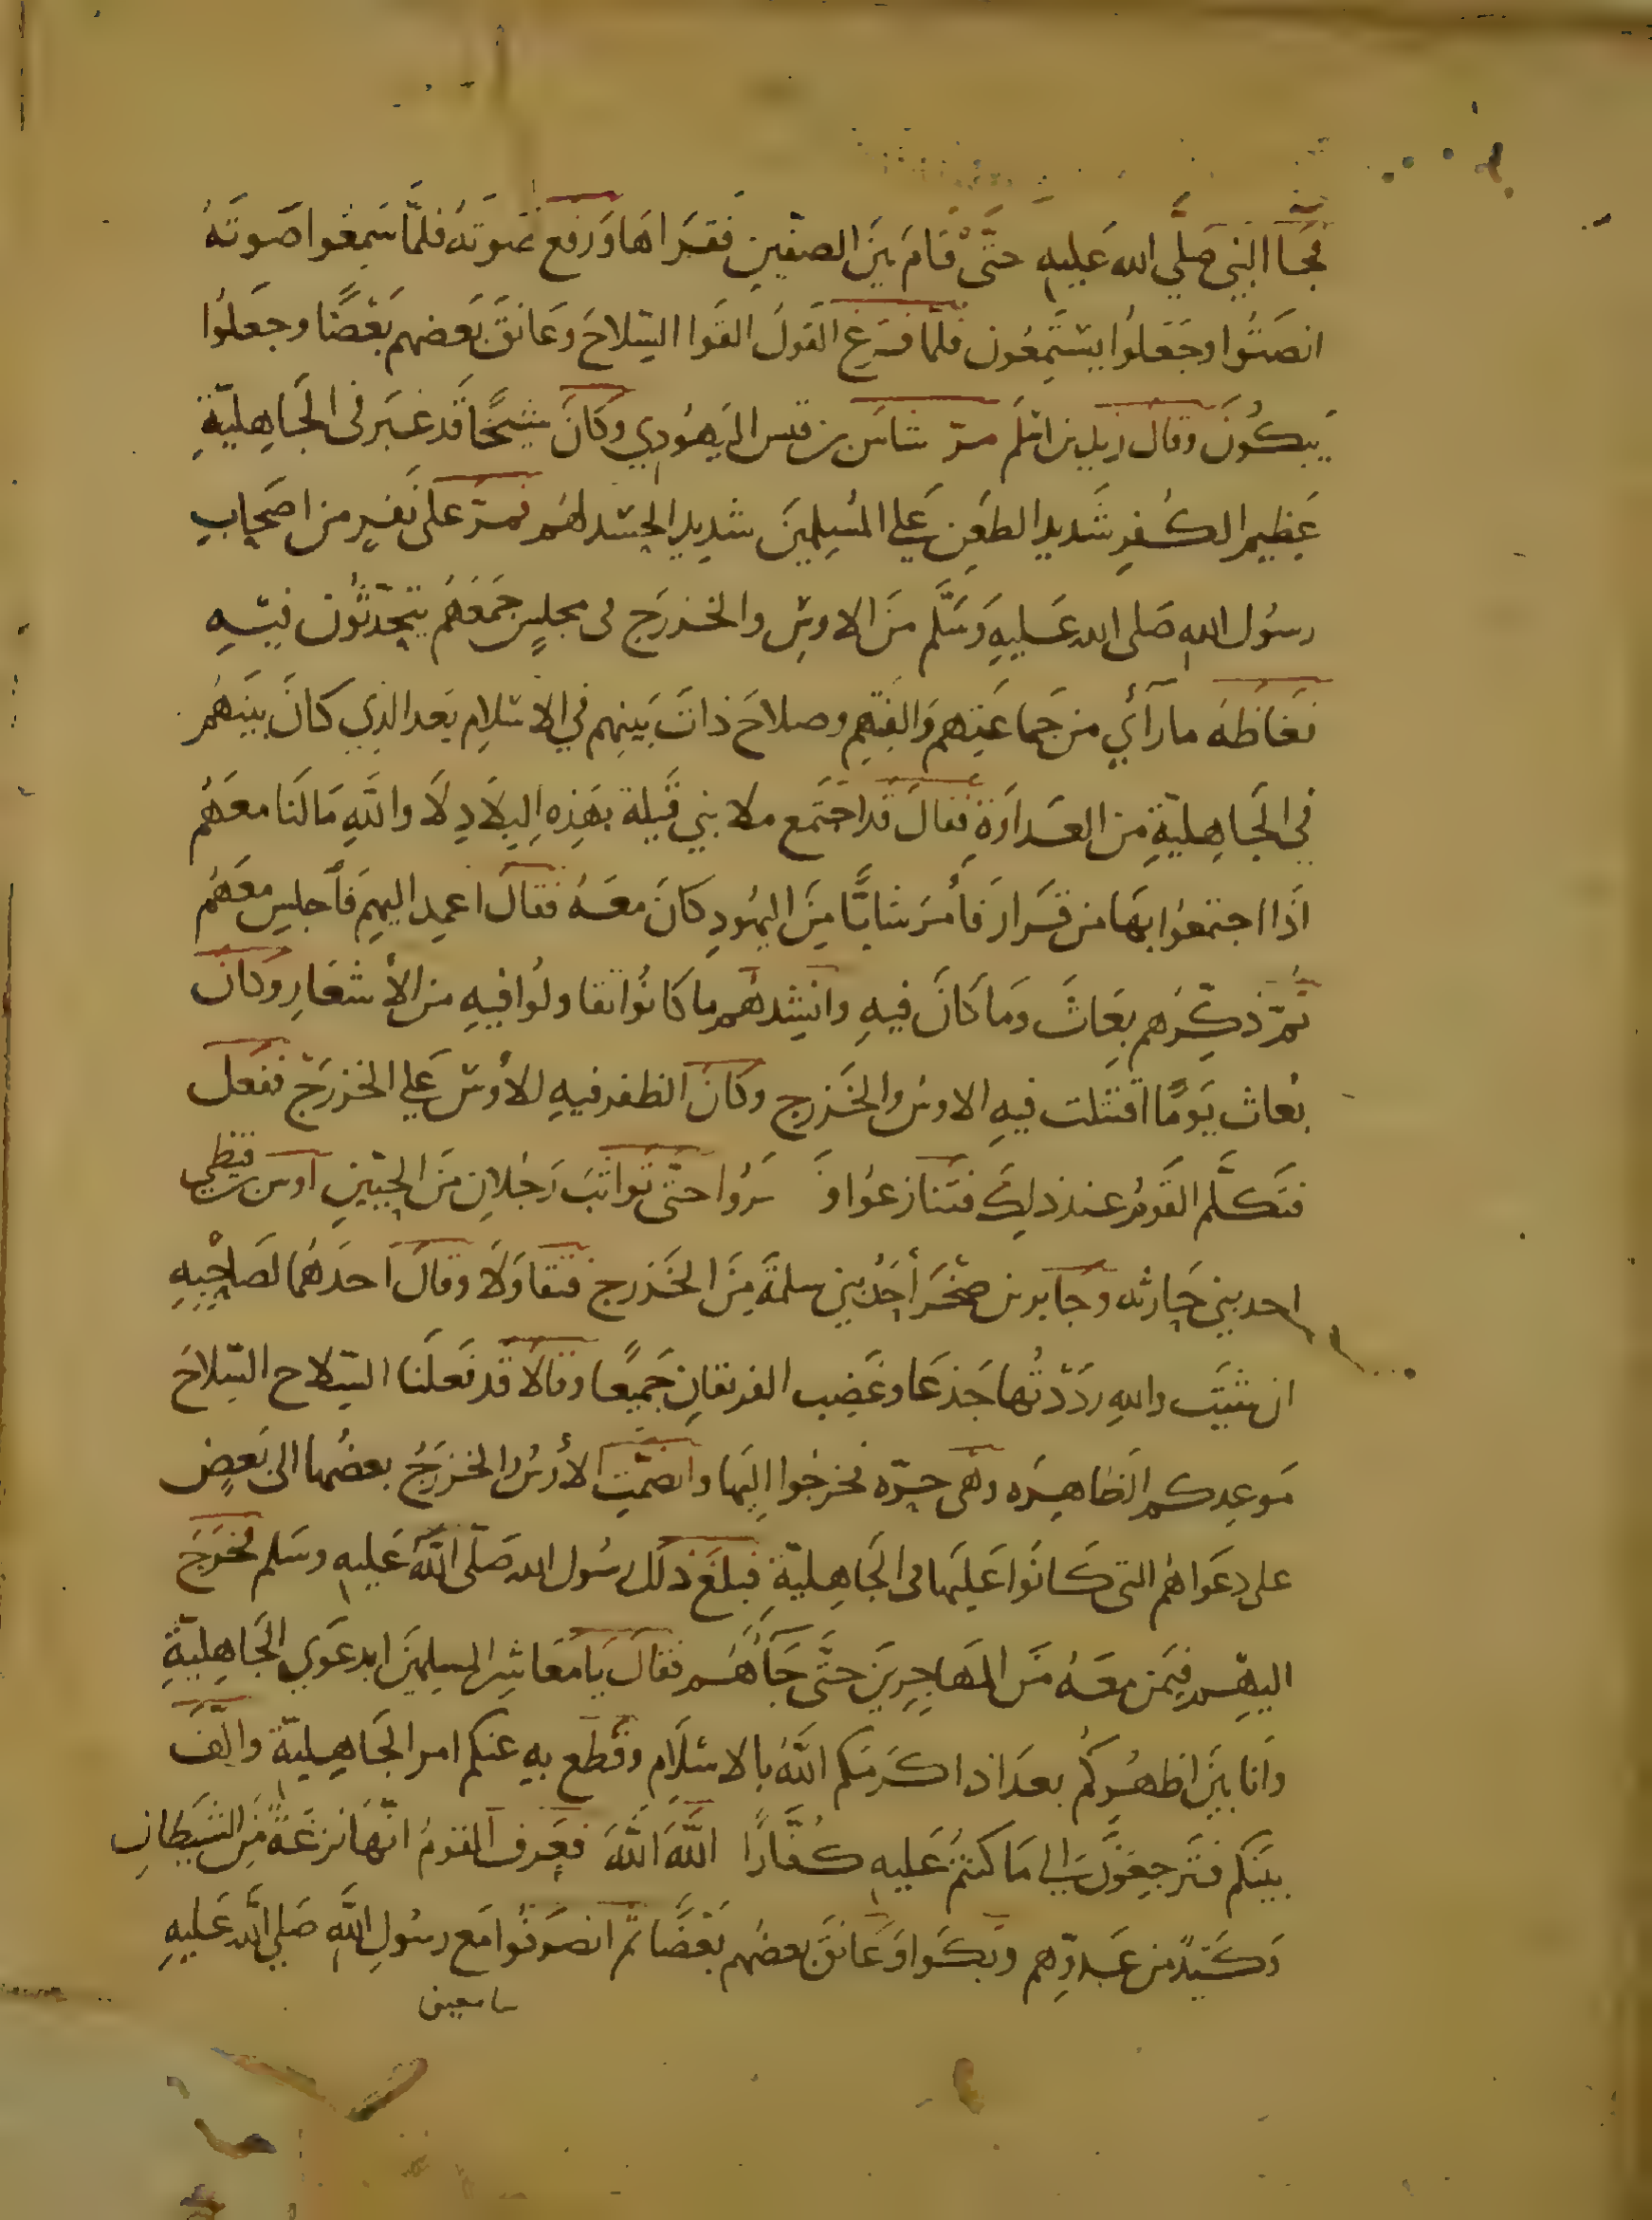 فجاا النبي صلي الله عليه حتى قام بين الصفين فقراها ورفع صوته فلما سمعوا صوته
انصتوا وجعلوا يستمعون فلما فرغ القول القوا السلاح وعانق بعضهم بعضا وجعلوا
يبكون وقال زيد بن اسلم مر شاس بن قيس اليهودي وكان شيخا قد غبر في الجاهلية
عظيم الكفر شديد الطعن علي المسلمين شديد الحسد لهم فمر على نفر من اصحاب
رسول الله صلى الله عليه وسلم من الاوس والخزرج في مجلس جمعهم يتحدثون فيه
فغاظه ما رأي من جماعتهم والفتهم وصلاح ذات بينهم في الاسلام بعد الذي كان بينهم
في الجاهلية من العداوة فقال قد اجتمع ملا بني قيلة بهذه البلاد لا والله ما لنا معهم
اذا اجتمعوا بها من قرار فأمر شابا من اليهود كان معه فقال اعمد اليهم فأجلس معهم
ثم ذكرهم بعاث وما كان فيه وانشدهم ما كانوا تقاولوا فيه من الأشعار وكان
بعاث يوما اقتتلت فيه الاوس والخزرج وكان الظفر فيه للأوس علي الخزرج ففعل
فتكلم القوم عند ذلك فتنازعوا و حتى تواثب رجلان من الحيين اوس بن قيظي
احد بني حارثه وجابر بن صخر أحد بني سلمة من الخزرج فتقاولا وقال احدهما لصاحبه
ان شيت والله رددتها جذعا وغضب الفريقان جميعا وقالا قد فعلنا السلاح السلاح
موعدكم الظاهره وهى حره فخرجوا اليها وانضمت الأوس والخزرج بعضها الى بعض
على دعواهم التى كانوا عليها في الجاهلية فبلغ ذلك رسول الله صلى الله عليه وسلم فخرج
اليهم فيمن معه من المهاجرين حتى جاءهم فقال يا معاشر المسلمين ابدعوي الجاهلية
وانا بين اظهركم بعد اذ اكرمكم الله بالاسلام وقطع به عنكم امر الجاهلية والف
بينكم فترجعون الي ما كنتم عليه كفارا الله الله فعرف القوم انها نزغة من الشيطان
وكيد من عدوهم وبكوا وعانق بعضهم بعضا ثم انصرفوا مع رسول الله صلي الله عليه
سامعين